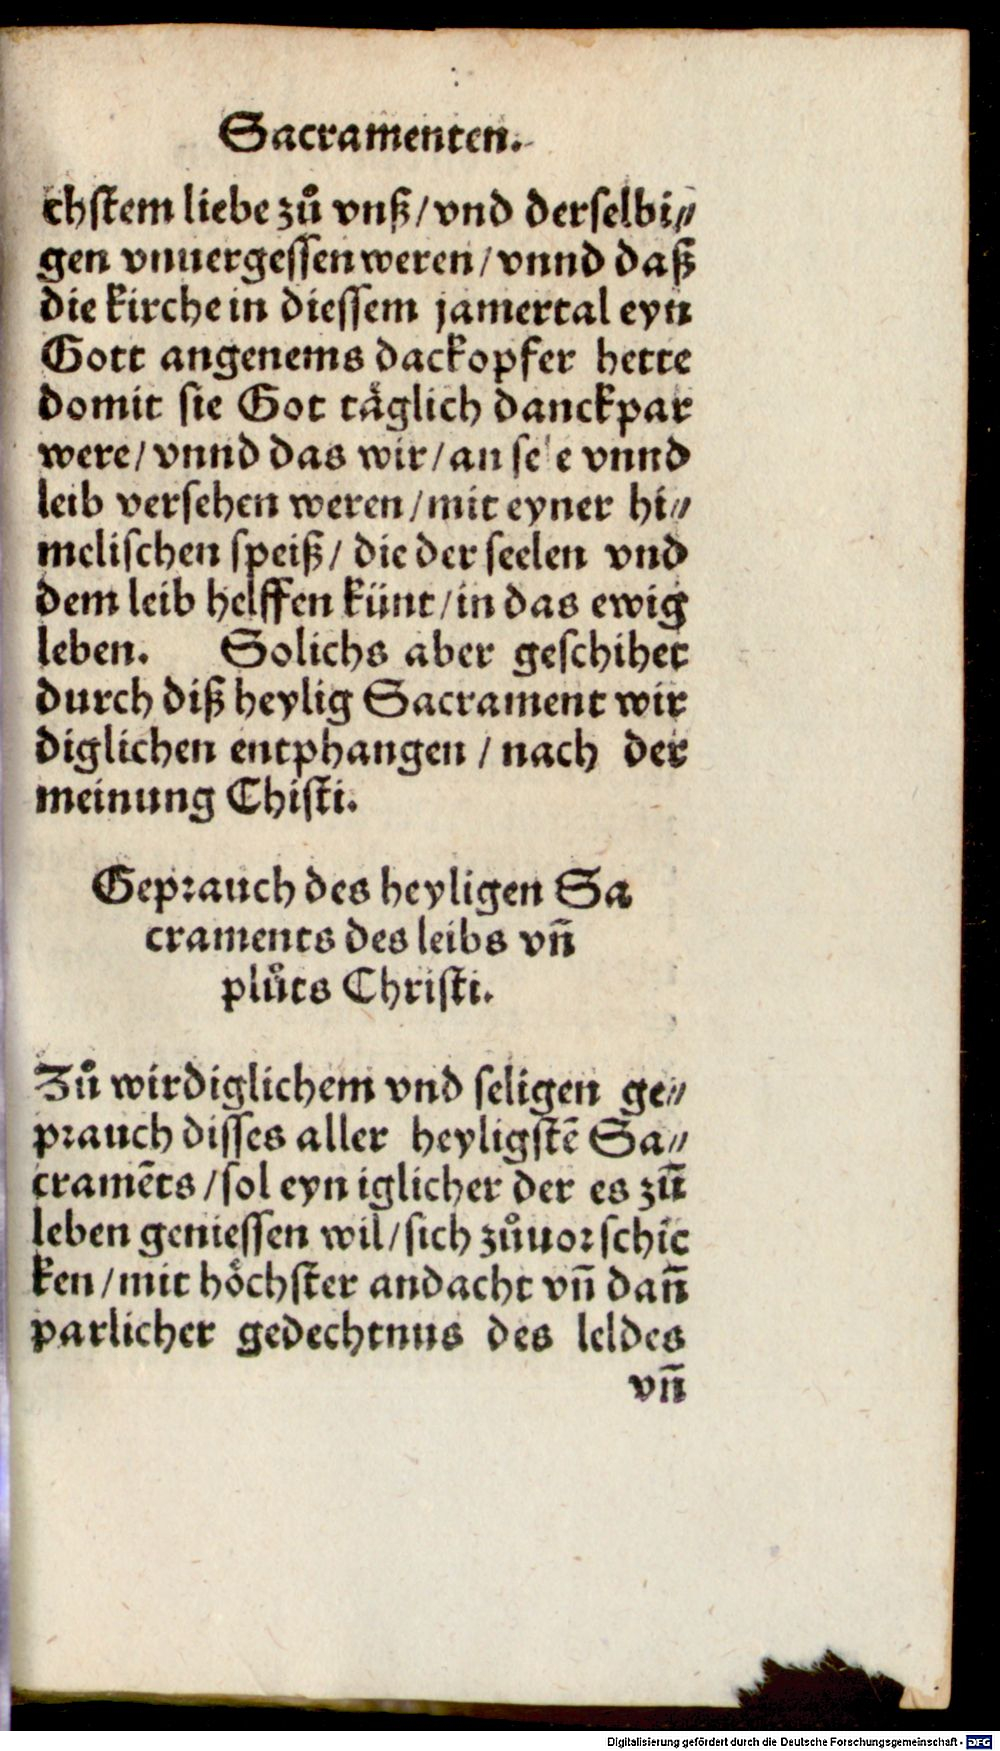 Sacramenten.
chstem liebe zuͦ vnß/vnd derselbi⸗
gen vnuergessen weren/vnnd daß
die kirche in diessem jamertal eyn
Gott angenems dackopfer hette
domit sie Got taͤglich danckpar
were/vnnd das wir/an se e vnnd
leib versehen weren/mit eyner hi⸗
melischen speiß/ die der seelen vnd
dem leib helffen künt/in das ewig
leben. Solichs aber geschihet
durch diß heylig Sacrament wir
diglichen entphangen / nach der
meinung Chisti.
Geprauch des heyligen Sa
craments des leibs vn̄
pluͦts Christi.
Zuͦ wirdiglichem vnd seligen ge⸗
prauch disses aller heyligstē Sa⸗
cramēts/sol eyn iglicher der es zū
leben geniessen wil/sich zuͦuor schic
ken/mit hoͤchster andacht vn̄ dan̄
parlicher gedechtnus des leldes
vn̄
Digitalisierung gefördert durch die Deutsche Forschungsgemeinschaft - DFG